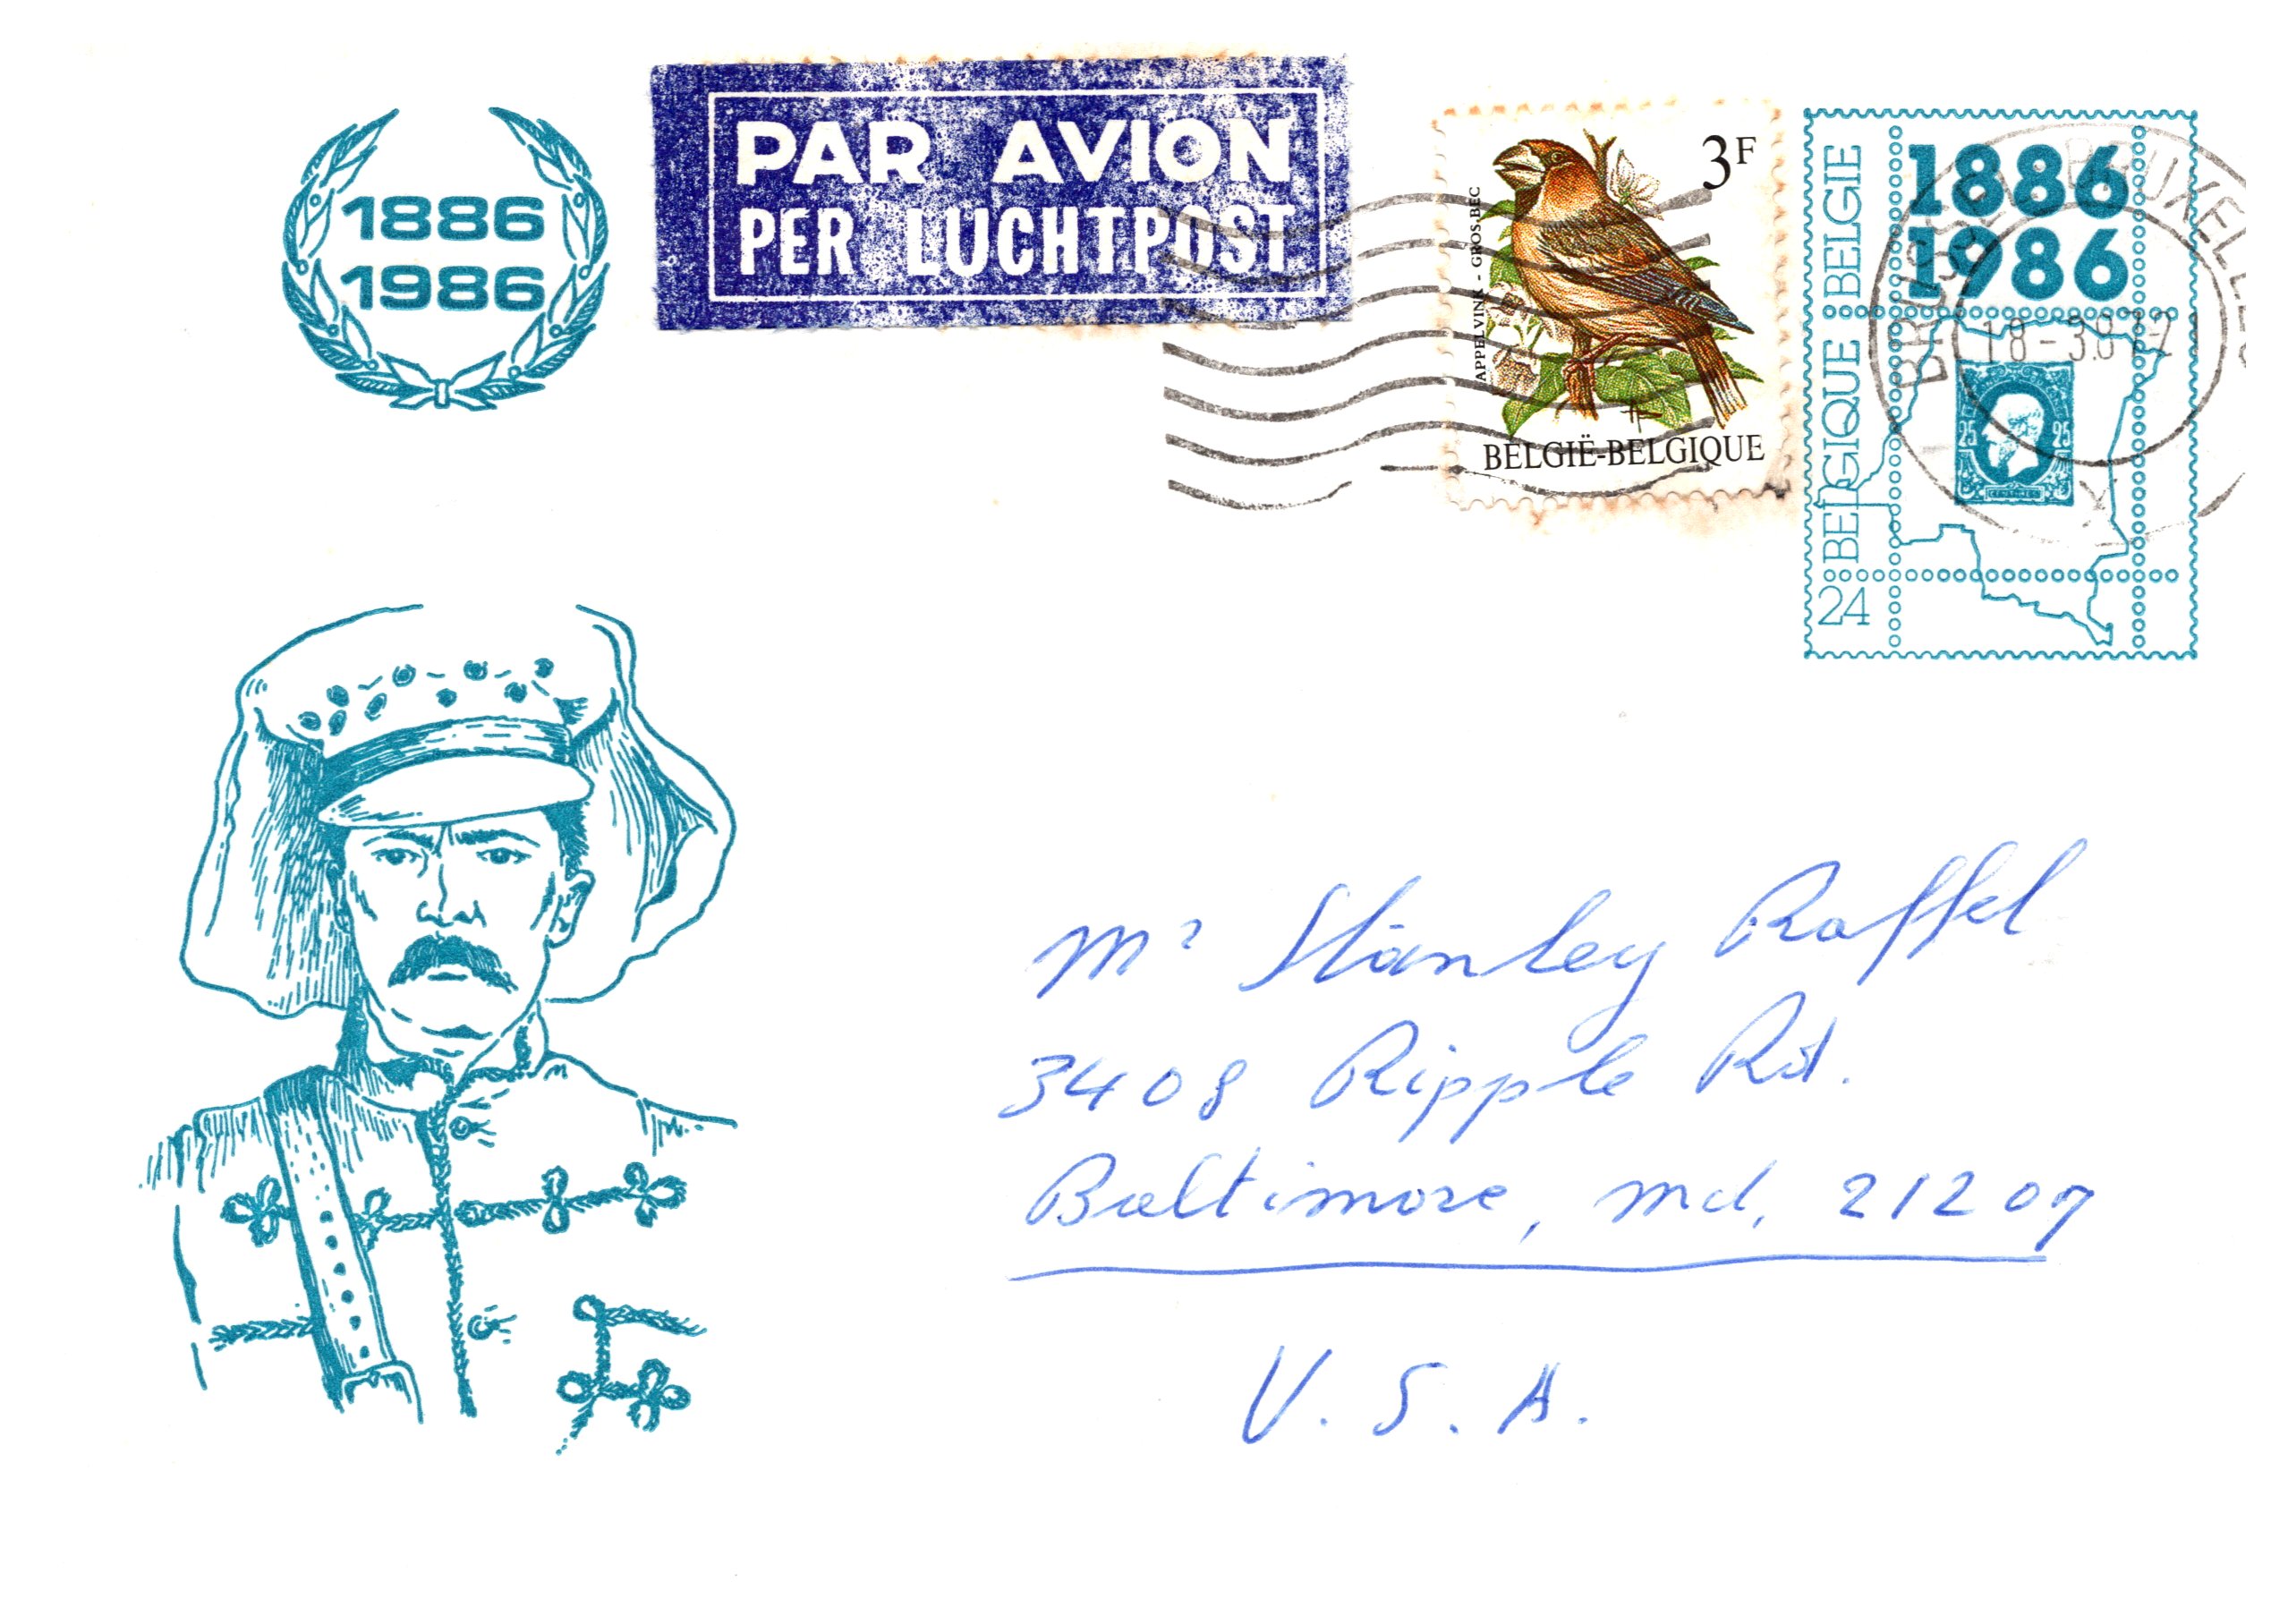 1886
1986
PAR AVION
PER LUCHTPOST
3F
APPELVINK - GROS-BEC
BELGIË-BELGIQUE
BELGIQUE BELGIE
1886
1986
25 25
CENTIMES
24
BRUSSEL BRUXELLES
18-3.87
Mr Stanley Raffel
3408 Ripple Rd.
Baltimore, Md, 21207
U.S.A.